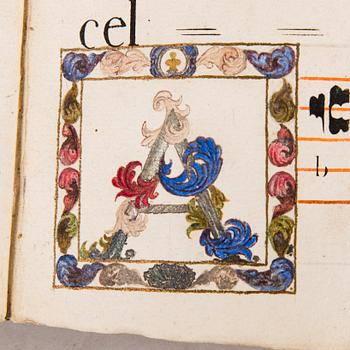 cel
A
b